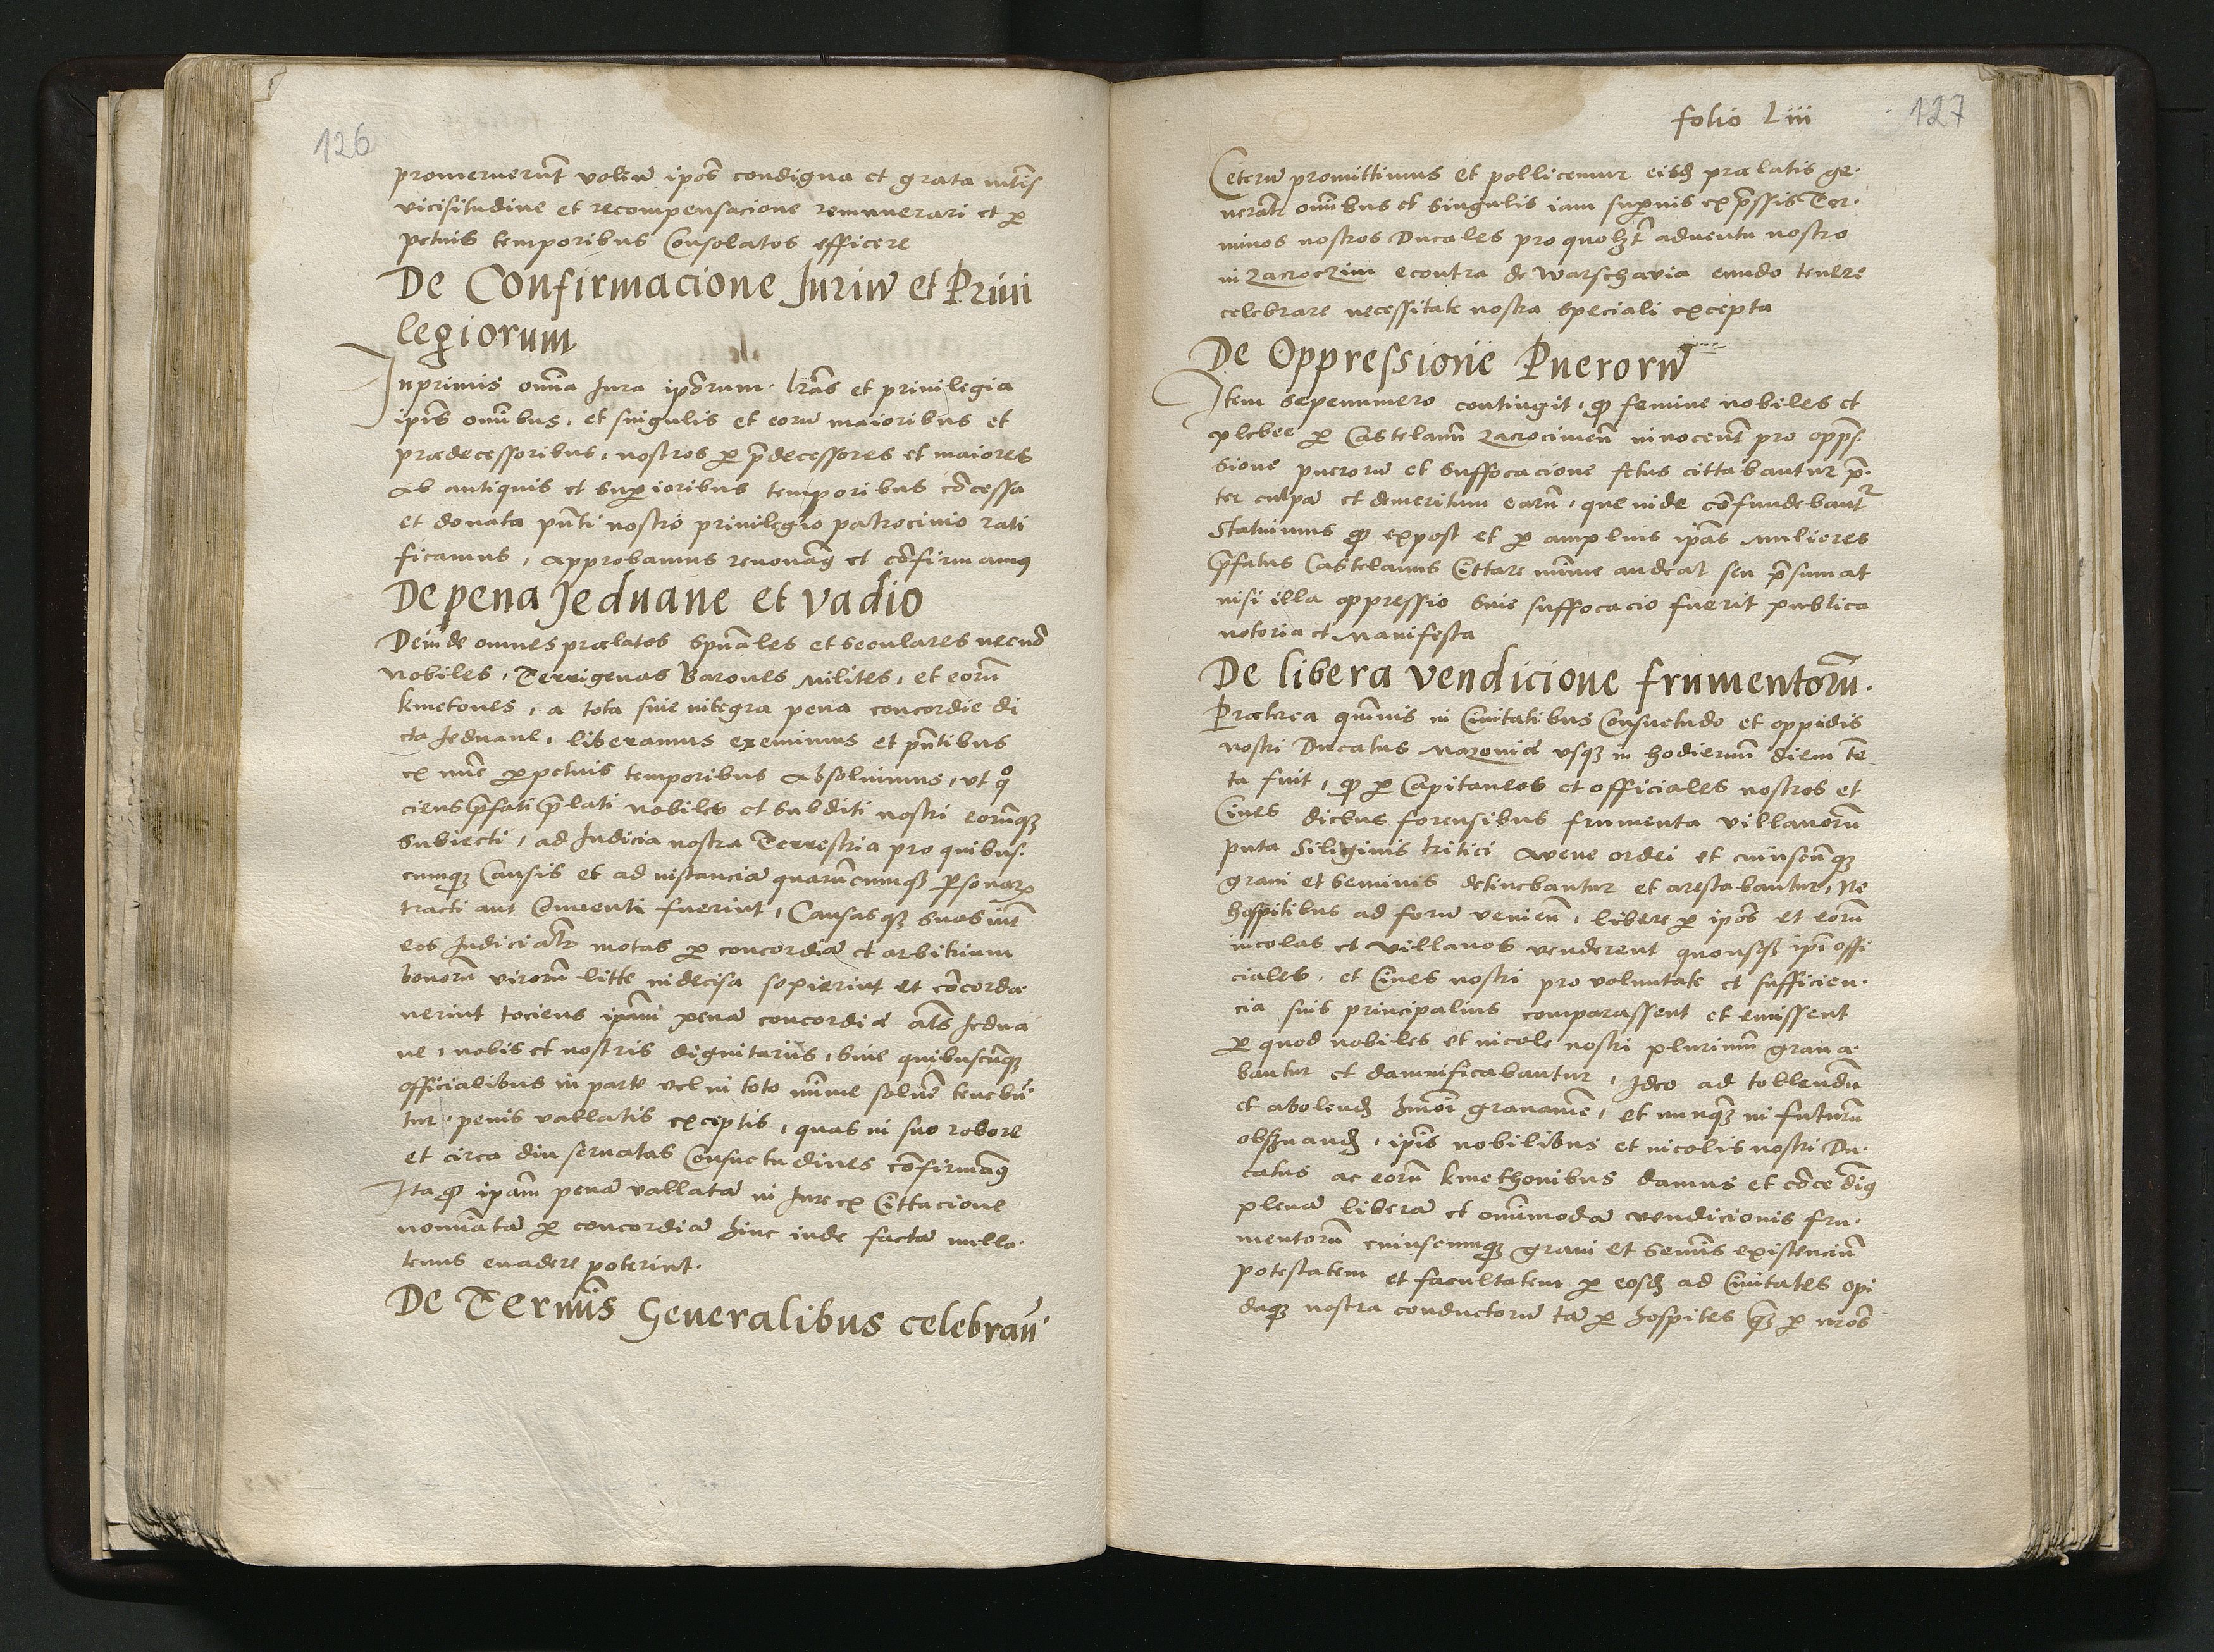 126
promeruerūt volēn ipōs condigna et grata mētis
vicisitudine et recompensacione remunerari et ꝑ
petuis temporibus Consolatos efficere
De Confirmacione Juriū et Priui
legiorum
Inprimis omīa Jura ipōrum lrās et priuilegia
ipīs omībus, et singulis et eorū maioribus et
prædecessoribus, nostros ꝑ p̄decessores et maiores
ab antiquis et superioribus temporibus cōcessa
et donata pn̄ti nostro priuilegio patrocinio rati
ficamus, approbamus renouam9 et cōfirmamus
De pena Jeduane et vadio
Deinde omnes prælatos spūales et seculares necnō
nobiles, Terrigenas Barones milites, et eorū
kmetones, a tota siue integra pena concordie di
cta Jeduane, liberamus exemimus et pn̄tibus
ex nūc ꝑpetuis temporibus absoluimus, vt qͦ
ciens p̄fati p̄lati nobiles et subditi nostri eorūqꝫ
subiecti, ad Judicia nostra Terrestria pro quibus
cumqꝫ Causis et ad instanciā quarūcumqꝫ ꝑsonarꝝ
tracti aut Conuenti fuerint, Causasqꝫ suas int̄
eos Judicialr motas ꝑ concordiā et arbitrium
bonorū virorū litte indecisa sopierint et cōcorda
uerint tociens ipām penā concordiæ als Jedua
ne, nobis et nostris dignitariis, siue quibuscūqꝫ
officialibus in parte vel in toto mīme soluē tenebū
tur, penis vallatis exceptis, quas in suo robore
et circa diu seruatas Consuetudines cōfirmam9
Ita ꝙ ipām penā vallatā in Jure ex Cittacione
nomīatā ꝑ concordiā hinc inde factā nulla
tenus euadere poterint.
De Termīs Generalibus celebrāń
folio Liii
127
Ceterū promittimus et pollicemur eisdꝫ prælatis ge
neralr omībus et singulis iam superius exp̄ssis Ter
minos nostros Ducales pro quolꝫt aduentu nostro
in Zacroczim econtra de Warschavia eundo tenere
celebrare necessitate nostra speciali excepta
De Oppressione Puerorū
Item sepenumero contingit, ꝙ femine nobiles et
plebee ꝑ Castelanū Zacrocimeń innocent̄ pro oppres
sione puerorū et suffocacione fetus cittabantur p̄
ter culpā et demeritum earū, que inde cōfundebant᷑
Statuimus ꝙ expost et ꝑ amplius ipās mulieres
p̄fatus Castelanus Cittare mīme audeat seu p̄sumat
nisi illa oppressio siue suffocacio fuerit publica
notoria et manifesta
De libera vendicione frumentorū.
Præterea qm̄uis in Ciuitatibus Consuetudo et oppidis
nostri Ducatus Mazouiæ vsqꝫ in hodiernū diem tē
ta fuit, ꝙ ꝑ Capitaneos et officiales nostros et
Ciues diebus forensibus frumenta villanorū
puta Siliginis tritici Avene ordei et cuiuscūqꝫ
grani et seminis detinebantur et arestabantur, Ne
hospitibus ad forū venień, libere ꝑ ipōs et eorū
incolas et villanos venderent quousqꝫ ipī offi
ciales, et Ciues nostri pro voluntate et sufficien
cia suis principalius comparassent et emissent
ꝑ quod nobiles et incole nostri plurimū graua
bantur et damnificabantur, Ideo ad tollendū
et abolendꝫ hmōi grauamē, et nunqꝫ in futurū
obsꝫuandꝫ, ipīs nobilibus et incolis nostri Du
catus ac eorū kmethonibus damus et cōcedim9
plenā liberā et omīmodā vendicionis fru
mentorū cuiuscumqꝫ grani et semīs existenciū
potestatem et facultatem ꝑ eosdꝫ ad Ciuitates opi
daqꝫ nostra conductorū tā ꝑ hospites qꝫ ꝑ nrōs